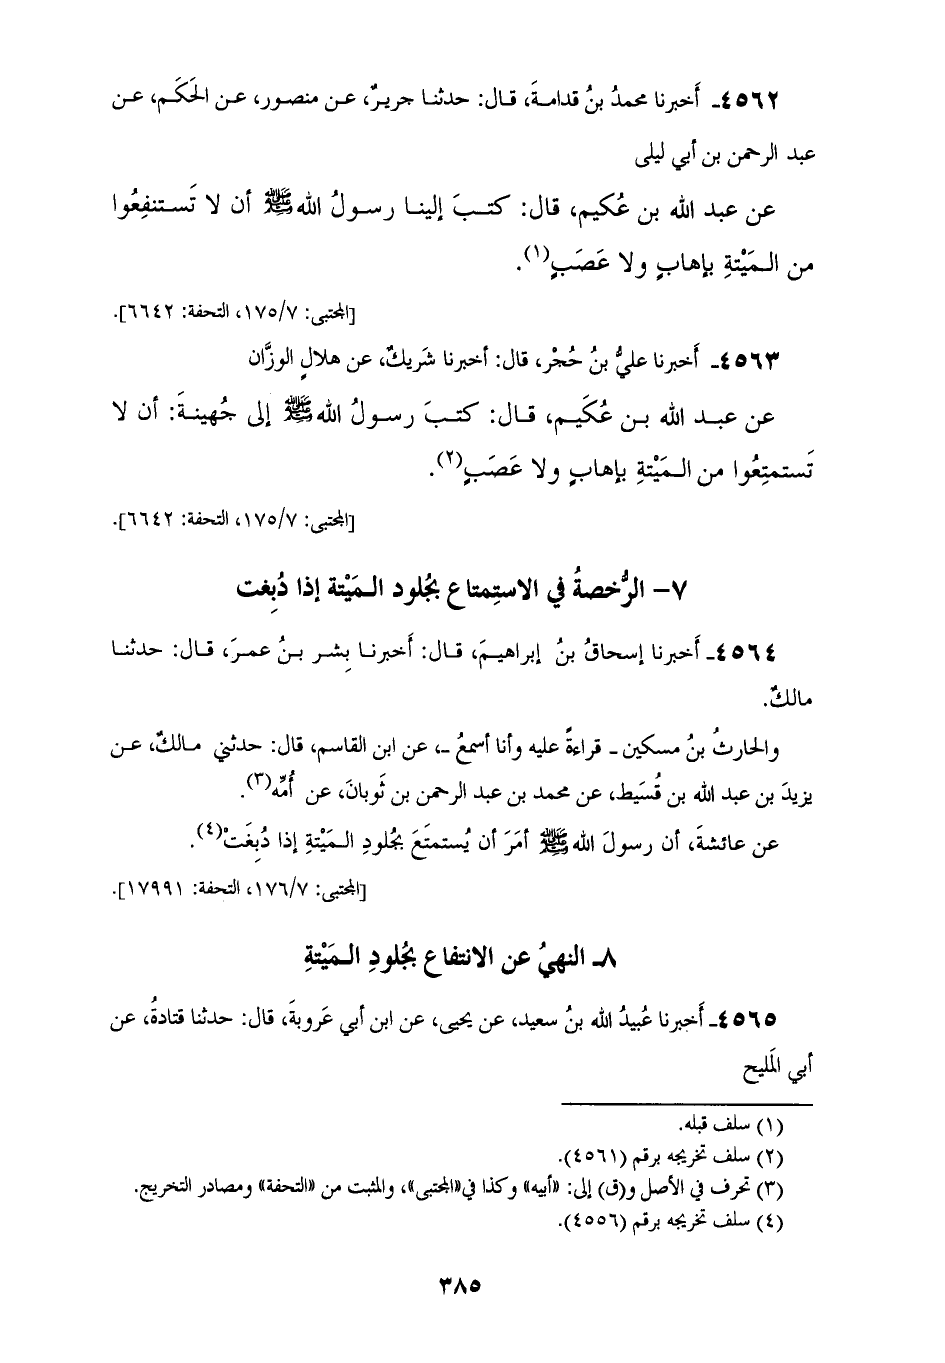 ٤٥٦٢ـ أَخبرنا محمدُ بنُ قدامةَ، قال: حدثنا جريرٌ، عن منصور، عن الحَكَم، عن
عبد الرحمن بن أبي ليلى
عن عبد الله بن عُكيم، قال: كتبَ إلينا رسولُ الله ﷺ أن لا تَستنفِعُوا
من المَيْتةِ بإهابٍ ولا عَصَبٍ(١).
[المجتبى: ١٧٥/٧، التحفة: ٦٦٤٢].
٤٥٦٣ـ أخبرنا عليُّ بنُ حُجْر، قال: أخبرنا شَريكٌ، عن هلالٍ الوزَّان
عن عبد الله بن عُكَيم، قال: كتبَ رسولُ الله ﷺ إلى جُهينةَ: أن لا
تَستمتِعُوا من المَيْتةِ بإهابٍ ولا عَصَبٍ(٢).
[المجتبى: ١٧٥/٧، التحفة: ٦٦٤٢].
٧ـ الرُّخصةُ في الاستِمتاع بجُلود المَيْتة إذا دُبِغت
٤٥٦٤ـ أَخبرنا إسحاقُ بنُ إبراهيمَ، قال: أَخبرنا بِشر بنُ عمرَ، قال: حدثنا
مالكٌ.
والحارثُ بنُ مسكين ـ قراءةً عليه وأنا أسمعُ ـ، عن ابن القاسم، قال: حدثني مالكٌ، عن
يزيدَ بن عبد الله بن قُسَيط، عن محمد بن عبد الرحمن بن ثَوبانَ، عن أُمِّه(٣).
عن عائشةَ، أن رسولَ الله ﷺ أمَرَ أن يُستمتَعَ بجُلودِ المَيْتةِ إذا دُبِغَتْ(٤).
[المجتبى: ١٧٦/٧، التحفة: ١٧٩٩١].
٨ـ النهيُ عن الانتفاع بجُلودِ المَيْتةِ
٤٥٦٥ـ أَخبرنا عُبيدُ الله بنُ سعيد، عن يحيى، عن ابن أبي عَروبةَ، قال: حدثنا قتادةُ، عن
أبي المَليح
(١) سلف قبله.
(٢) سلف تخريجه برقم (٤٥٦١).
(٣) تحرف في الأصل و(ق) إلى: «أبيه» وكذا في«المجتبى»، والمثبت من «التحفة» ومصادر التخريج.
(٤) سلف تخريجه برقم (٤٥٥٦).
٣٨٥